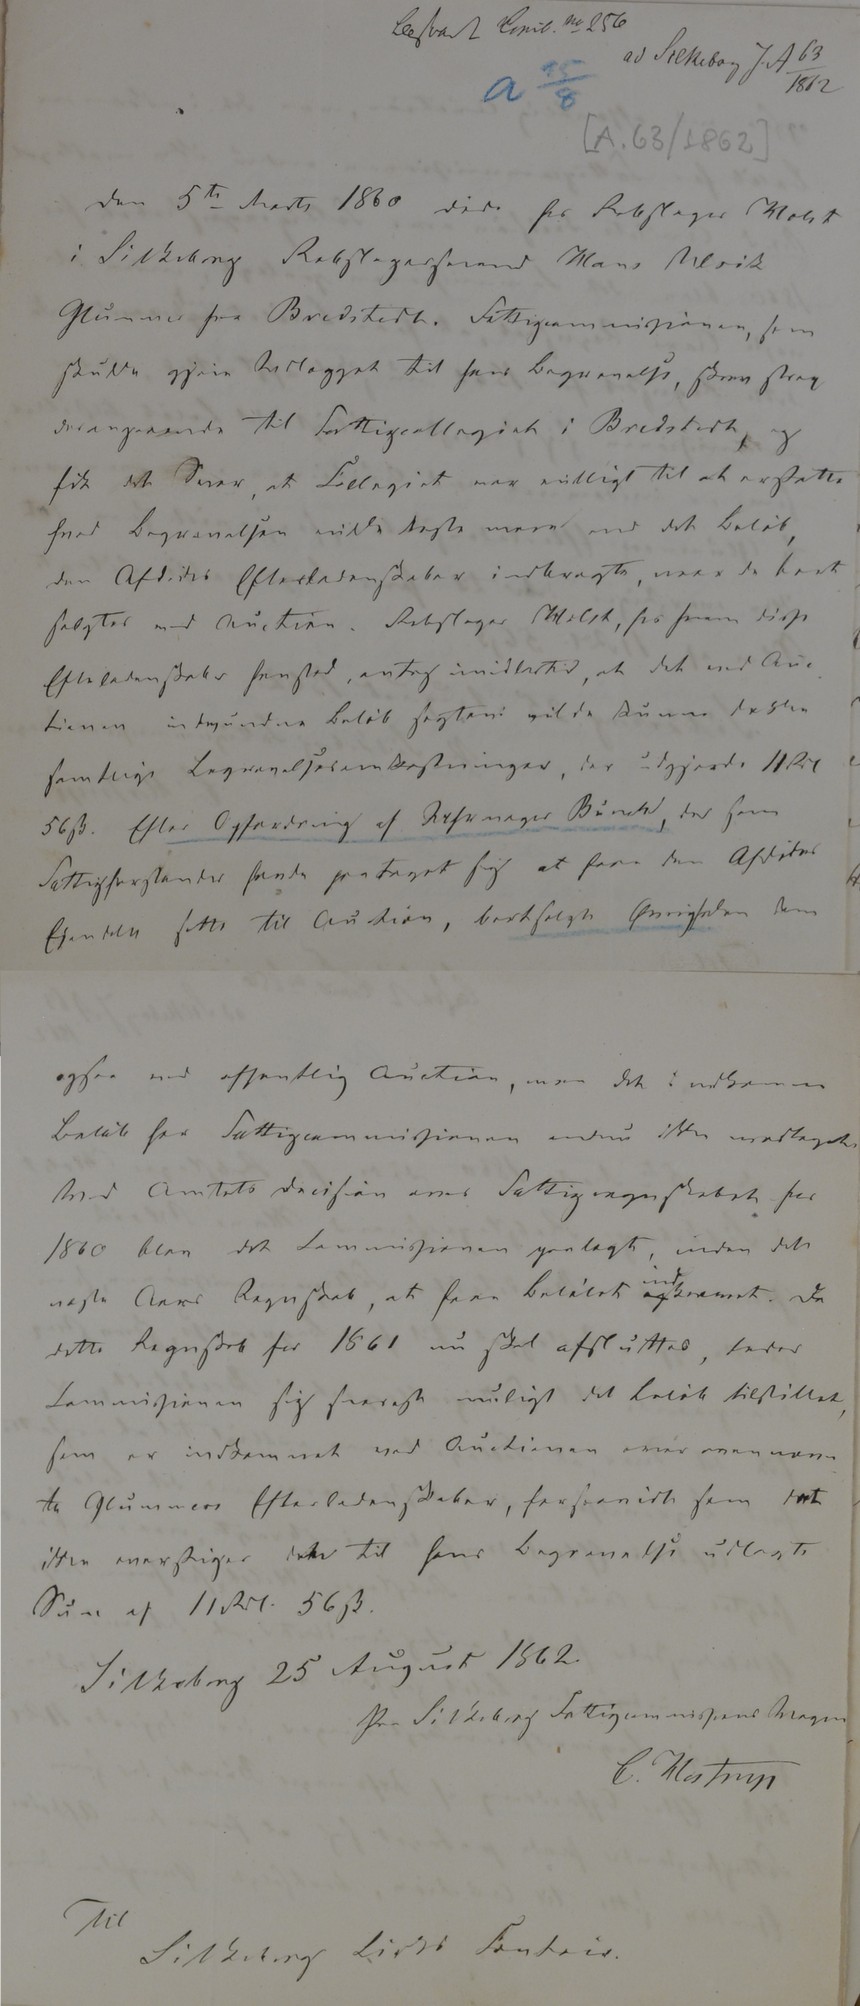 Besvaret Copib. No 256
ad Silkeborg J. A 63/1862
a 25/8
[A. 63/1862]
Den 5te Marts 1860 døde hos Rebslager Holst
i Silkeborg Rebslagersvend Hans Ulrik
Glummer fra Bredstedt. Fattigcommissionen, som
skulde gjøre Udlægget til hans Begravelse, skrev strax
desangaaende til Fattigcollegiet i Bredstedt, og
fik det Svar, at Collegiet var villigt til at erstatte
hvad Begravelsen vilde koste mere end det Beløb,
den Afdødes Efterladenskaber indbragte, naar de bort
solgtes ved Auction. Rebslager Holst, hos hvem disse
Efterladenskaber henstod, antog imidlertid, at det ved Auc
tionen indvundne Beløb sagtens vilde kunne dække
samtlige Begravelsesomkostninger, der udgjorde 11 Rd
56 ß. Efter Opfordring af Buch, der som
Fattigforstander havde paataget sig at faae den Afdødes
Eiendele satte til Auction, bortsolgte Øvrigheden dem
ogsaa ved offentlig Auction, men det indkomne
Beløb har Fattigcommissionen endnu ikke modtaget.
Ved Amtets Decision over Fattigregnskabet for
1860 blev det Commissionen paalagt, inden det
næste Aars Regnskab, at faae Beløbet indkrævet. Da
dette Regnskab for 1861 nu skal afsluttes, beder
Commissionen sig snarest muligt det Beløb tilstillet,
som er indkommet ved Auctionen over ovennævn
te Glummers Efterladenskaber, forsaavidt som det
ikke overstiger den til hans Begravelse udlagte
Sum af 11 Rd. 56 ß.
Silkeborg 25 August 1862.
Paa Silkeborg Fattigcommissions Vegne
C. Hostrup
Til
Silkeborg Birks Contoir.